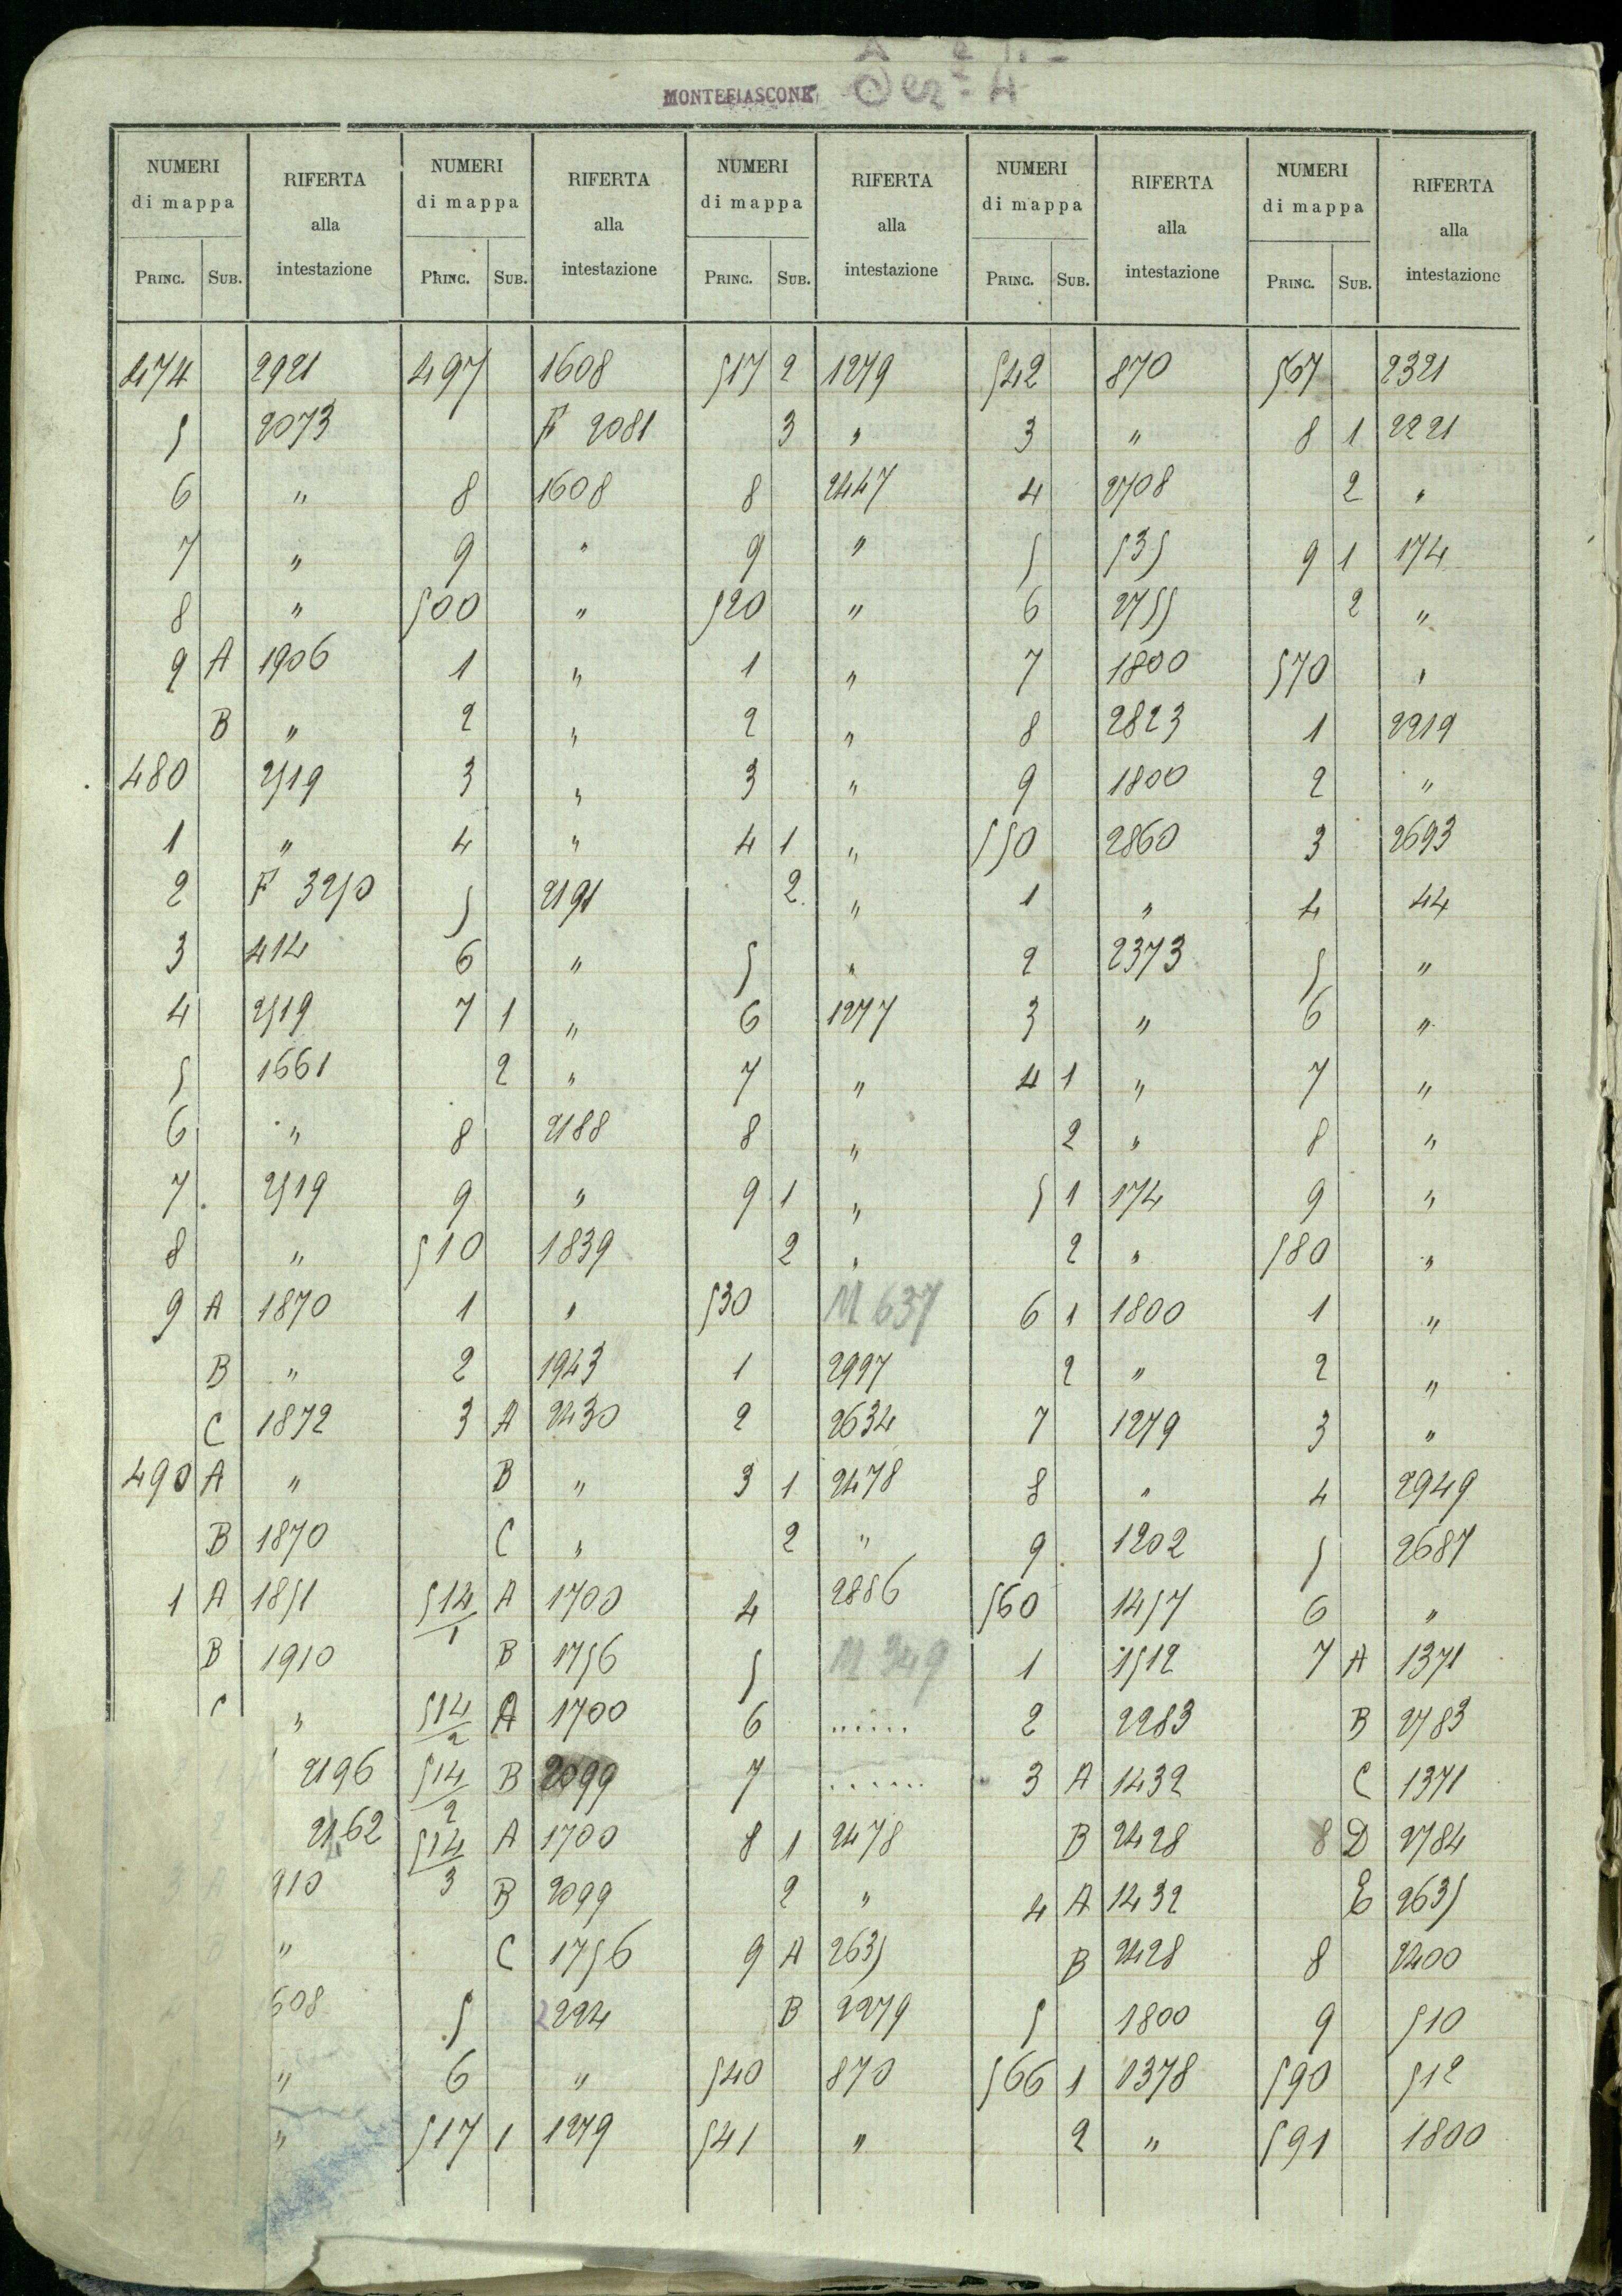 MONTEFIASCONE Sez<sup>e</sup> 4
NUMERI di mappa RIFERTA alla intestazione NUMERI di mappa RIFERTA alla intestazione NUMERI di mappa RIFERTA alla intestazione NUMERI di mappa RIFERTA alla intestazione NUMERI di mappa RIFERTA alla intestazione
PRINC. SUB. PRINC. SUB. PRINC. SUB. PRINC. SUB. PRINC. SUB.
474 2921 497 1608 517 2 1279 542 870 567 2321
5 2073 F 2081 3 " 3 " 8 1 2221
6 " 8 1608 8 2447 4 2708 2 "
7 " 9 " 9 " 5 535 9 1 174
8 " 500 " 520 " 6 2755 2 "
9 A 1906 1 " 1 " 7 1800 570 "
B " 2 " 2 " 8 2823 1 2219
480 2519 3 " 3 " 9 1800 2 "
1 " 4 " 4 1 " 550 2860 3 2693
2 F 3250 5 2191 2 " 1 " 4 44
3 414 6 " 5 " 2 2373 5 "
4 2519 7 1 " 6 1277 3 " 6 "
5 1661 2 " 7 " 4 1 " 7 "
6 " 8 2188 8 " 2 " 8 "
7 2519 9 " 9 1 " 5 1 174 9 "
8 " 510 1839 2 " 2 " 580 "
9 A 1870 1 " 530 M 637 6 1 1800 1 "
B " 2 1943 1 2997 2 " 2 "
C 1872 3 A 2430 2 2634 7 1279 3 "
490 A " B " 3 1 2478 8 " 4 2949
B 1870 C " 2 " 9 1202 5 2687
1 A 1851 514/1 A 1700 4 2886 560 1457 6 "
B 1910 B 1756 5 M 349 1 1512 7 A 1371
C " 514/2 A 1700 6 ...... 2 2283 B 2783
2196 514/2 B 2099 7 ...... 3 A 1432 C 1371
2162 514/3 A 1700 8 1 2478 B 2428 8 D 2784
910 B 2099 2 " 4 A 1432 E 2635
" C 1756 9 A 2635 B 2428 8 2400
608 5 2224 B 2279 5 1800 9 510
" 6 " 540 870 566 1 1378 590 512
" 517 1 1279 541 " 2 " 591 1800